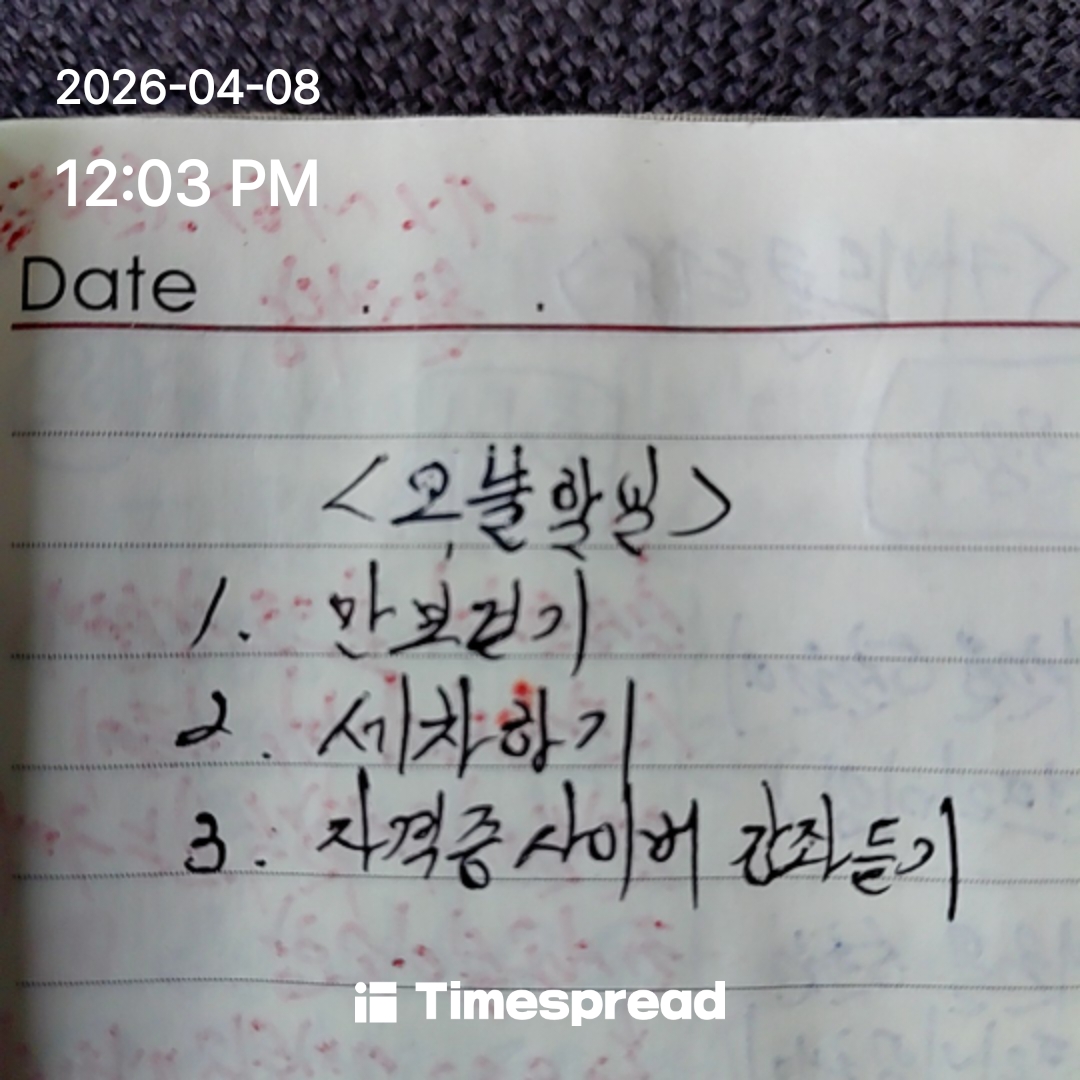 2026-04-08
12:03 PM
Date . .
<오늘할일>
1. 만보걷기
2. 세차하기
3. 자격증사이버 강좌듣기
Timespread